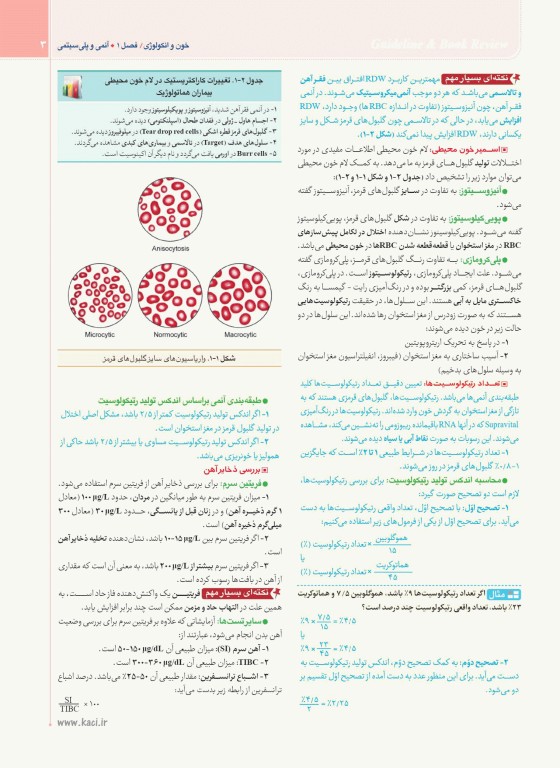 خون و انکولوژی/ فصل ۱ • آنمی و پلی‌سیتمی
۳
Guideline & Book Review
نکته‌ای بسیار مهم مهمترین کاربرد RDW افتراق بین فقر آهن
و تالاسمی می‌باشد که هر دو موجب آنمی میکروسیتیک می‌شوند. در آنمی
فقر آهن، چون آنیزوسیتوز (تفاوت در اندازه RBCها) وجود دارد، RDW
افزایش می‌یابد، در حالی که در تالاسمی چون گلبول‌های قرمز شکل و سایز
یکسانی دارند، RDW افزایش پیدا نمی‌کند (شکل ۲-۱).
اسمیر خون محیطی: لام خون محیطی اطلاعات مفیدی در مورد
اختلالات تولید گلبول‌های قرمز به ما می‌دهد. به کمک لام خون محیطی
می‌توان موارد زیر را تشخیص داد (جدول ۲-۱ و شکل ۱-۱ و ۲-۱):
آنیزوسیتوز: به تفاوت در سایز گلبول‌های قرمز، آنیزوسیتوز گفته
می‌شود.
پویی‌کیلوسیتوز: به تفاوت در شکل گلبول‌های قرمز، پویی‌کیلوسیتوز
گفته می‌شود. پویی‌کیلوسیتوز نشان‌دهنده اختلال در تکامل پیش‌سازهای
RBC در مغز استخوان یا قطعه قطعه شدن RBCها در خون محیطی می‌باشد.
پلی‌کرومازی: به تفاوت رنگ گلبول‌های قرمز، پلی‌کرومازی گفته
می‌شود. علت ایجاد پلی‌کرومازی، رتیکولوسیتوز است. در پلی‌کرومازی،
گلبول‌های قرمز، کمی بزرگتر بوده و در رنگ‌آمیزی رایت - گیمسا به رنگ
خاکستری مایل به آبی هستند. این سلول‌ها، در حقیقت رتیکولوسیت‌هایی
هستند که به صورت زودرس از مغز استخوان رها شده‌اند. این سلول‌ها در دو
حالت زیر در خون دیده می‌شوند:
۱- در پاسخ به تحریک اریتروپویتین
۲- آسیب ساختاری به مغز استخوان (فیبروز، انفیلتراسیون مغز استخوان
به وسیله سلول‌های بدخیم)
تعداد رتیکولوسیت‌ها: تعیین دقیق تعداد رتیکولوسیت‌ها کلید
طبقه‌بندی آنمی‌ها می‌باشد. رتیکولوسیت‌ها، گلبول‌های قرمزی هستند که به
تازگی از مغز استخوان به گردش خون وارد شده‌اند. رتیکولوسیت‌ها در رنگ‌آمیزی
Supravital که در آنها RNA باقیمانده ریبوزومی را ته‌نشین می‌کند، مشاهده
می‌شوند. این رسوبات به صورت نقاط آبی یا سیاه دیده می‌شوند.
۱- تعداد رتیکولوسیت‌ها در شرایط طبیعی ۱ تا ۲٪ است که جایگزین
۰/۸-۱٪ گلبول‌های قرمز در روز می‌شوند.
محاسبه اندکس تولید رتیکولوسیت: برای بررسی رتیکولوسیت‌ها،
لازم است دو تصحیح صورت گیرد:
۱- تصحیح اوّل: با تصحیح اوّل، تعداد واقعی رتیکولوسیت‌ها به دست
می‌آید. برای تصحیح اوّل از یکی از فرمول‌های زیر استفاده می‌کنیم:
هموگلوبین
۱۵
× تعداد رتیکولوسیت (٪)
یا
هماتوکریت
۴۵
× تعداد رتیکولوسیت (٪)
مثال اگر تعداد رتیکولوسیت‌ها ۹٪ باشد. هموگلوبین ۷/۵ و هماتوکریت
۲۳٪ باشد. تعداد واقعی رتیکولوسیت چند درصد است؟
٪۹ × ۷/۵ / ۱۵ = ٪۴/۵
یا
٪۹ × ۲۳ / ۴۵ = ٪۴/۵
۲- تصحیح دوّم: به کمک تصحیح دوّم، اندکس تولید رتیکولوسیت به
دست می‌آید. برای این منظور عدد به دست آمده از تصحیح اوّل تقسیم بر
دو می‌شود.
٪۴/۵ / ۲ = ٪۲/۲۵
جدول ۲-۱. تغییرات کاراکتریستیک در لام خون محیطی
بیماران هماتولوژیک
۱- در آنمی فقر آهن شدید، آنیزوسیتوز و پویکیلوسیتوز وجود دارد.
۲- اجسام هاول - ژولی در فقدان طحال (اسپلنکتومی) دیده می‌شوند.
۳- گلبول‌های قرمز قطره اشکی (Tear drop red cells) در میلوفیبروز دیده می‌شوند.
۴- سلول‌های هدف (Target) در تالاسمی و بیماری‌های کبدی مشاهده می‌گردند.
۵- Burr cells در اورمی یافت می‌گردد و نام دیگر آن اکینوسیت است.
Anisocytosis
Microcytic
Normocytic
Macrocytic
شکل ۱-۱. واریاسیون‌های سایز گلبول‌های قرمز
طبقه‌بندی آنمی براساس اندکس تولید رتیکولوسیت
۱- اگر اندکس تولید رتیکولوسیت کمتر از ۲/۵ باشد، مشکل اصلی اختلال
در تولید گلبول قرمز در مغز استخوان است.
۲- اگر اندکس تولید رتیکولوسیت مساوی یا بیشتر از ۲/۵ باشد حاکی از
همولیز یا خونریزی می‌باشد.
بررسی ذخایر آهن
فریتین سرم: برای بررسی ذخایر آهن از فریتین سرم استفاده می‌شود.
۱- میزان فریتین سرم به طور میانگین در مردان، حدود ۱۰۰ µg/L (معادل
۱ گرم ذخیره آهن) و در زنان قبل از یائسگی، حدود ۳۰ µg/L (معادل ۳۰۰
میلی‌گرم ذخیره آهن) است.
۲- اگر فریتین سرم بین ۱۰-۱۵ µg/L باشد، نشان‌دهنده تخلیه ذخایر آهن
است.
۳- اگر فریتین سرم بیشتر از ۲۰۰ µg/L باشد، به معنی آن است که مقداری
از آهن در بافت‌ها رسوب کرده است.
نکته‌ای بسیار مهم فریتین یک واکنش‌دهنده فاز حاد است، به
همین علت در التهاب حاد و مزمن ممکن است چند برابر افزایش یابد.
سایر تست‌ها: آزمایشاتی که علاوه بر فریتین سرم برای بررسی وضعیت
آهن بدن انجام می‌شود، عبارتند از:
۱- آهن سرم (SI): میزان طبیعی آن ۵۰-۱۵۰ µg/dL است.
۲- TIBC: میزان طبیعی آن ۳۰۰-۳۶۰ µg/dL است.
۳- اشباع ترانسفرین: مقدار طبیعی آن ۲۵-۵۰٪ می‌باشد. درصد اشباع
ترانسفرین از رابطه زیر بدست می‌آید:
SI / TIBC × ۱۰۰
www.kaci.ir